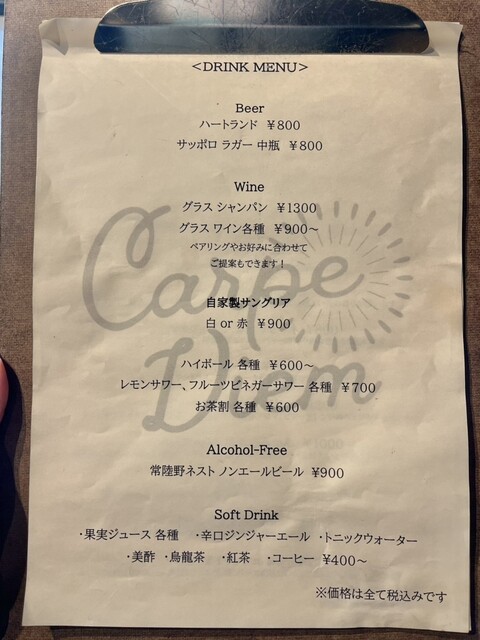 <DRINK MENU>
Beer
ハートランド ¥800
サッポロ ラガー 中瓶 ¥800
Wine
グラス シャンパン ¥1300
グラス ワイン各種 ¥900～
ペアリングやお好みに合わせて
ご提案もできます！
自家製サングリア
白 or 赤 ¥900
ハイボール 各種 ¥600～
レモンサワー、フルーツビネガーサワー 各種 ¥700
お茶割 各種 ¥600
Alcohol-Free
常陸野ネスト ノンエールビール ¥900
Soft Drink
・果実ジュース 各種 ・辛口ジンジャーエール ・トニックウォーター
・美酢 ・烏龍茶 ・紅茶 ・コーヒー ¥400～
※価格は全て税込みです
Carpe
Diem